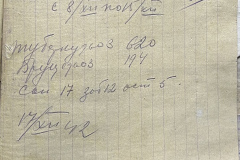 с 8/XII по 15/XII
туберкулез 620
Бруцелез 194
Сап 17 заб 12 ост 5.
17/XII 42